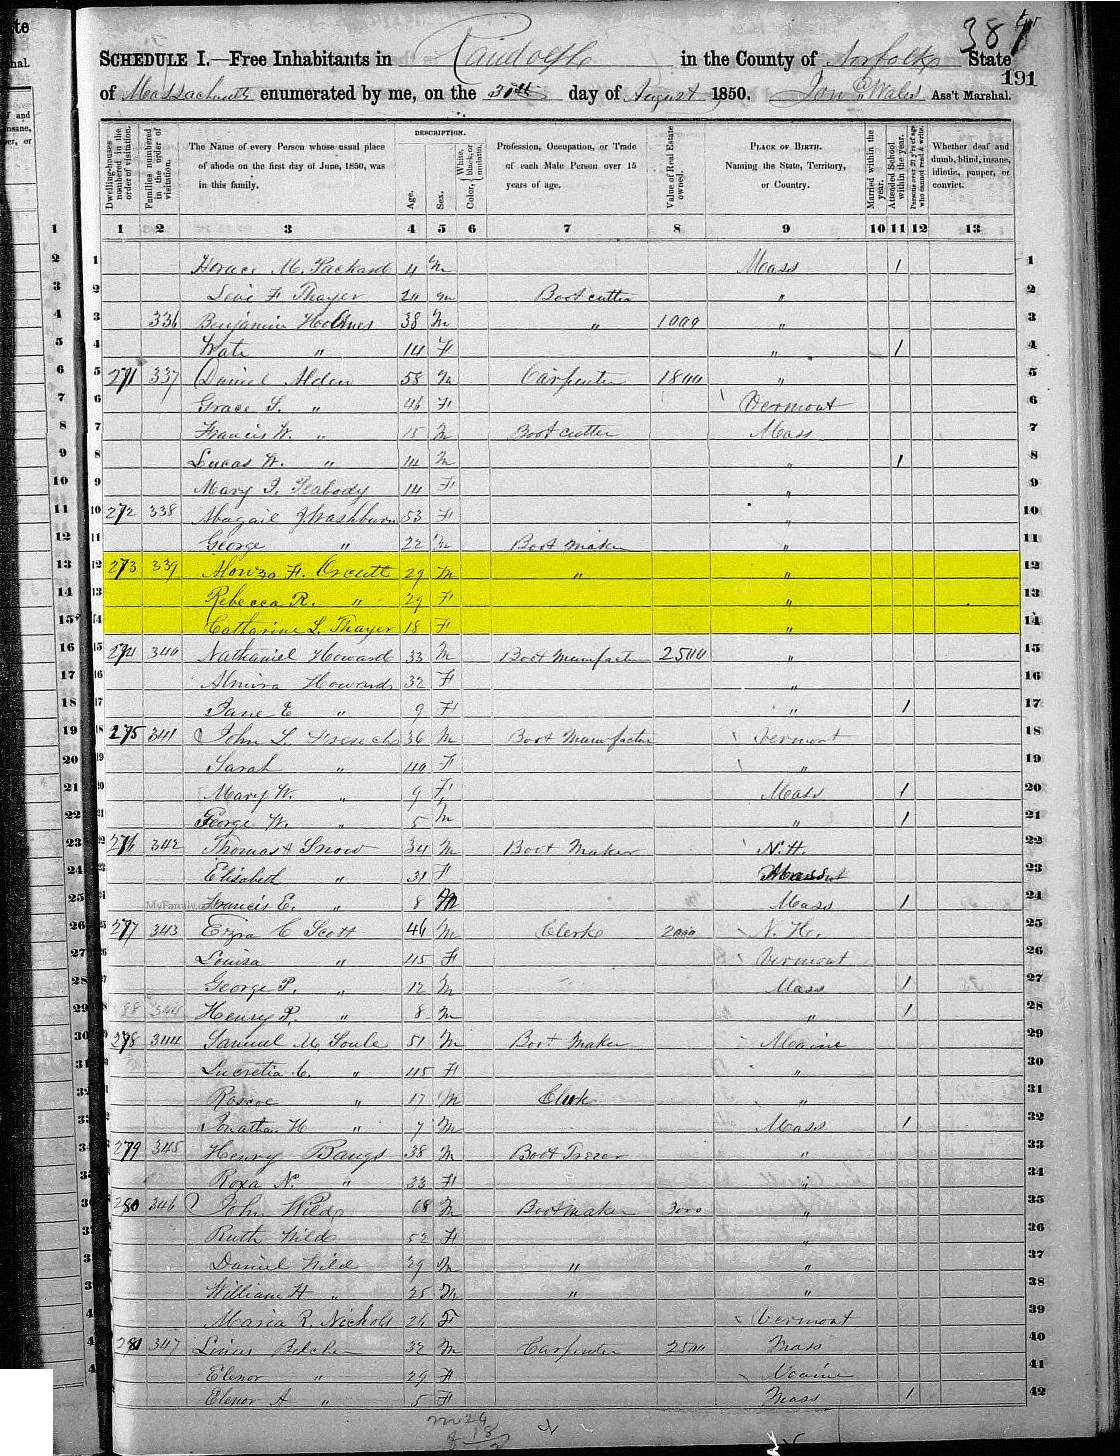 te
384
SCHEDULE I.—Free Inhabitants in Randolph in the County of Norfolk State
191
of Massachusetts enumerated by me, on the 30th day of August 1850. Wales Ass't Marshal.
DESCRIPTION.
Dwelling-houses numbered in the order of visitation.
Families numbered in the order of visitation.
The Name of every Person whose usual place of abode on the first day of June, 1850, was in this family.
Age.
Sex.
Color, White, black, or mulatto.
Profession, Occupation, or Trade of each Male Person over 15 years of age.
Value of Real Estate owned.
PLACE OF BIRTH. Naming the State, Territory, or Country.
Married within the year.
Attended School within the year.
Persons over 20 y'rs of age who cannot read & write.
Whether deaf and dumb, blind, insane, idiotic, pauper, or convict.
1 2 3 4 5 6 7 8 9 10 11 12 13
1 Horace M. Packard 4 M Mass 1 1
2 Levi F Thayer 24 M Boot cutter " 2
3 336 Benjamin Holmes 38 M " 1000 " 3
4 " 14 F " 1 4
5 271 337 Daniel Alden 58 M Carpenter 1800 " 5
6 Grace S. " 46 F Vermont 6
7 Francis W. " 15 M Boot cutter Mass 7
8 Lucas W. " 14 M " 1 8
9 Mary J. Peabody 14 F " 9
10 272 338 Abagail Washburn 53 F " 10
11 George " 22 M Boot Maker " 11
12 273 339 Alonzo F. Orcutt 29 M " " 12
13 Rebecca R. " 29 F " 13
14 Catharine L. Thayer 18 F " 14
15 274 340 Nathaniel Howard 33 M Boot Manufactur 2500 " 15
16 Almira Howard 32 F " 16
17 Jane E " 9 F " 1 17
18 275 341 John L. French 36 M Boot Manufactur Vermont 18
19 Sarah " 40 F " 19
20 Mary W. " 9 F Mass 1 20
21 George W. " 5 M " 1 21
22 276 342 Thomas Snow 34 M Boot Maker N.H. 22
23 Elisabeth " 31 F 23
24 Francis E. " 8 M Mass 1 24
MyFamily
25 277 343 Ezra C Scott 46 M Clerk 2000 N. H. 25
26 Louisa " 45 F Vermont 26
27 George P. " 12 M Mass 1 27
28 Henry P. " 8 M " 1 28
29 278 344 Samuel M. Soule 51 M Boot Maker Maine 29
30 Lucretia C. " 45 F " 30
31 Roscoe " 17 M Clerk " 31
32 Jonathan H " 7 M Mass 1 32
33 279 345 Henry Bangs 38 M Boot Treer " 33
34 Roxa N. " 33 F " 34
35 280 346 John Wild 68 M Boot maker 3000 " 35
36 Ruth Wild 52 F " 36
37 Daniel Wild 29 M " " 37
38 William H " 25 M " " 38
39 Maria R. Nichols 26 F Vermont 39
40 281 347 Linus Belcher 32 M Carpenter 2500 Mass 40
41 Elenor " 29 F Maine 41
42 Elenor A " 5 F Mass 1 42